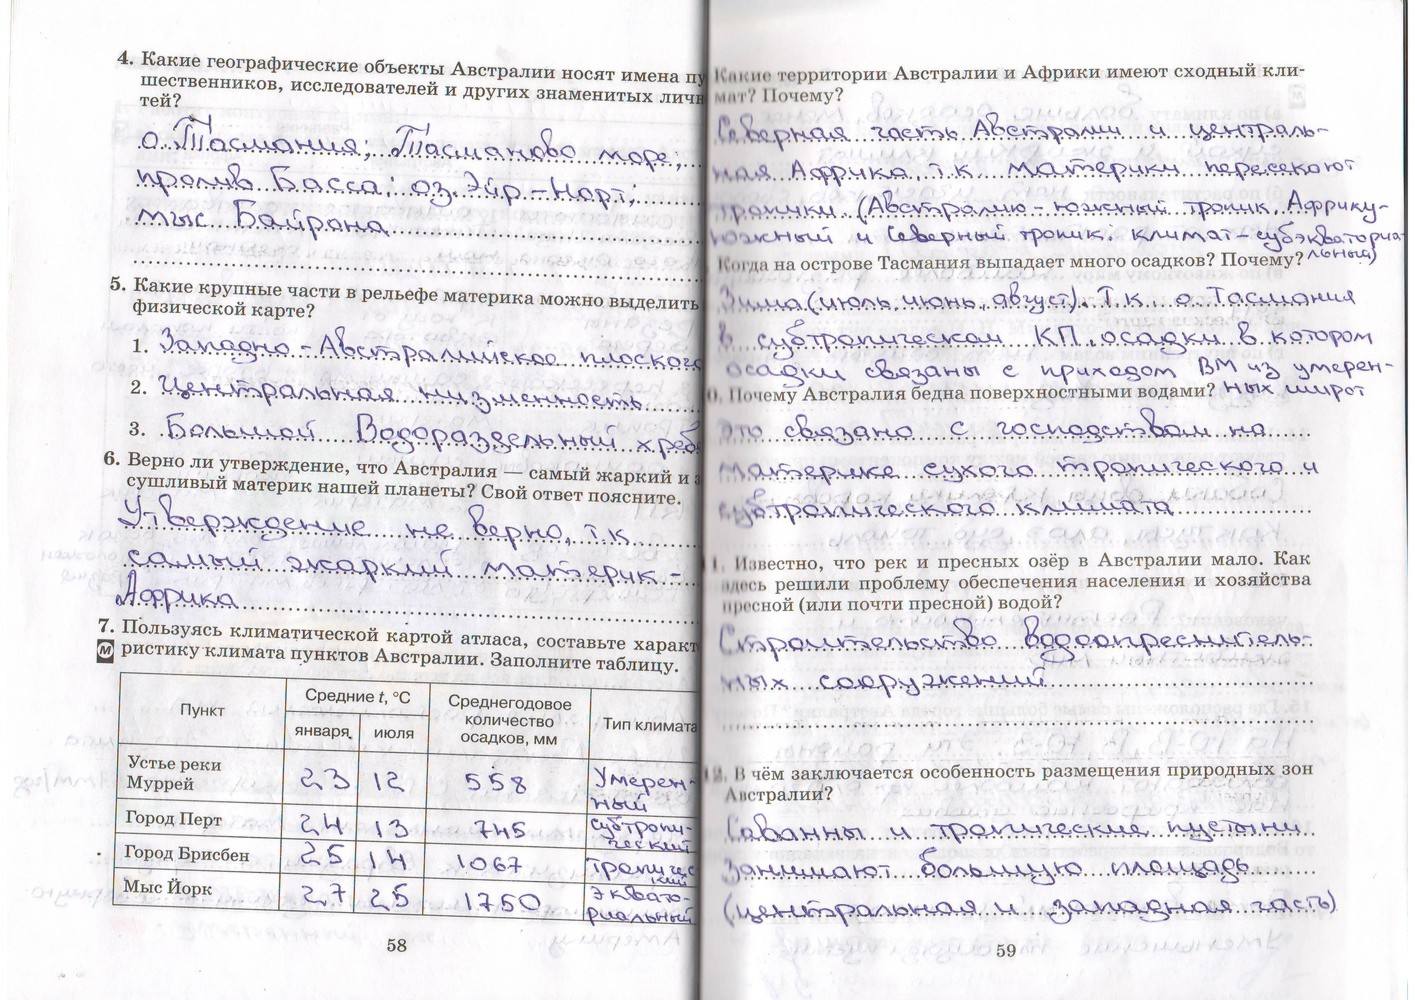 4. Какие географические объекты Австралии носят имена пу
шественников, исследователей и других знаменитых личн
тей?
о. Тасмания; Тасманово море;
пролив Басса; оз. Эйр-Норт;
мыс Байрона
5. Какие крупные части в рельефе материка можно выделить
физической карте?
1. Западно-Австралийское плоского
2. Центральная низменность
3. Большой Водораздельный хреб
6. Верно ли утверждение, что Австралия — самый жаркий и з
сушливый материк нашей планеты? Свой ответ поясните.
Утверждение не верно, т.к.
самый жаркий материк -
Африка
7. Пользуясь климатической картой атласа, составьте характ
М ристику климата пунктов Австралии. Заполните таблицу.
Пункт
Средние t, °C
января
июля
Среднегодовое
количество
осадков, мм
Тип климата
Устье реки
Муррей
23 12 558 Умерен-
ный
Город Перт 24 13 745 субтропи-
ческий
Город Брисбен 25 14 1067 тропичес
кий
Мыс Йорк 27 25 1750 эквато-
риальный
58
Какие территории Австралии и Африки имеют сходный кли-
мат? Почему?
Северная часть Австралии и централь-
ная Африка, т.к. материки пересекают
тропики (Австралию - южный тропик, Африку-
южный и северный тропик. климат-субэкваториа
льный)
Когда на острове Тасмания выпадает много осадков? Почему?
Зима (июль, июнь, август). Т.к. о. Тасмания
в субтропическом КП, осадки в котором
осадки связаны с приходом ВМ из умерен-
ных широт
0. Почему Австралия бедна поверхностными водами?
Это связано с господством на
материке сухого тропического и
субтропического климата
1. Известно, что рек и пресных озёр в Австралии мало. Как
здесь решили проблему обеспечения населения и хозяйства
пресной (или почти пресной) водой?
Строительство водоопреснитель-
ных сооружений
12. В чём заключается особенность размещения природных зон
Австралии?
Саванны и тропические пустыни
занимают большую площадь
(центральная и западная часть)
59